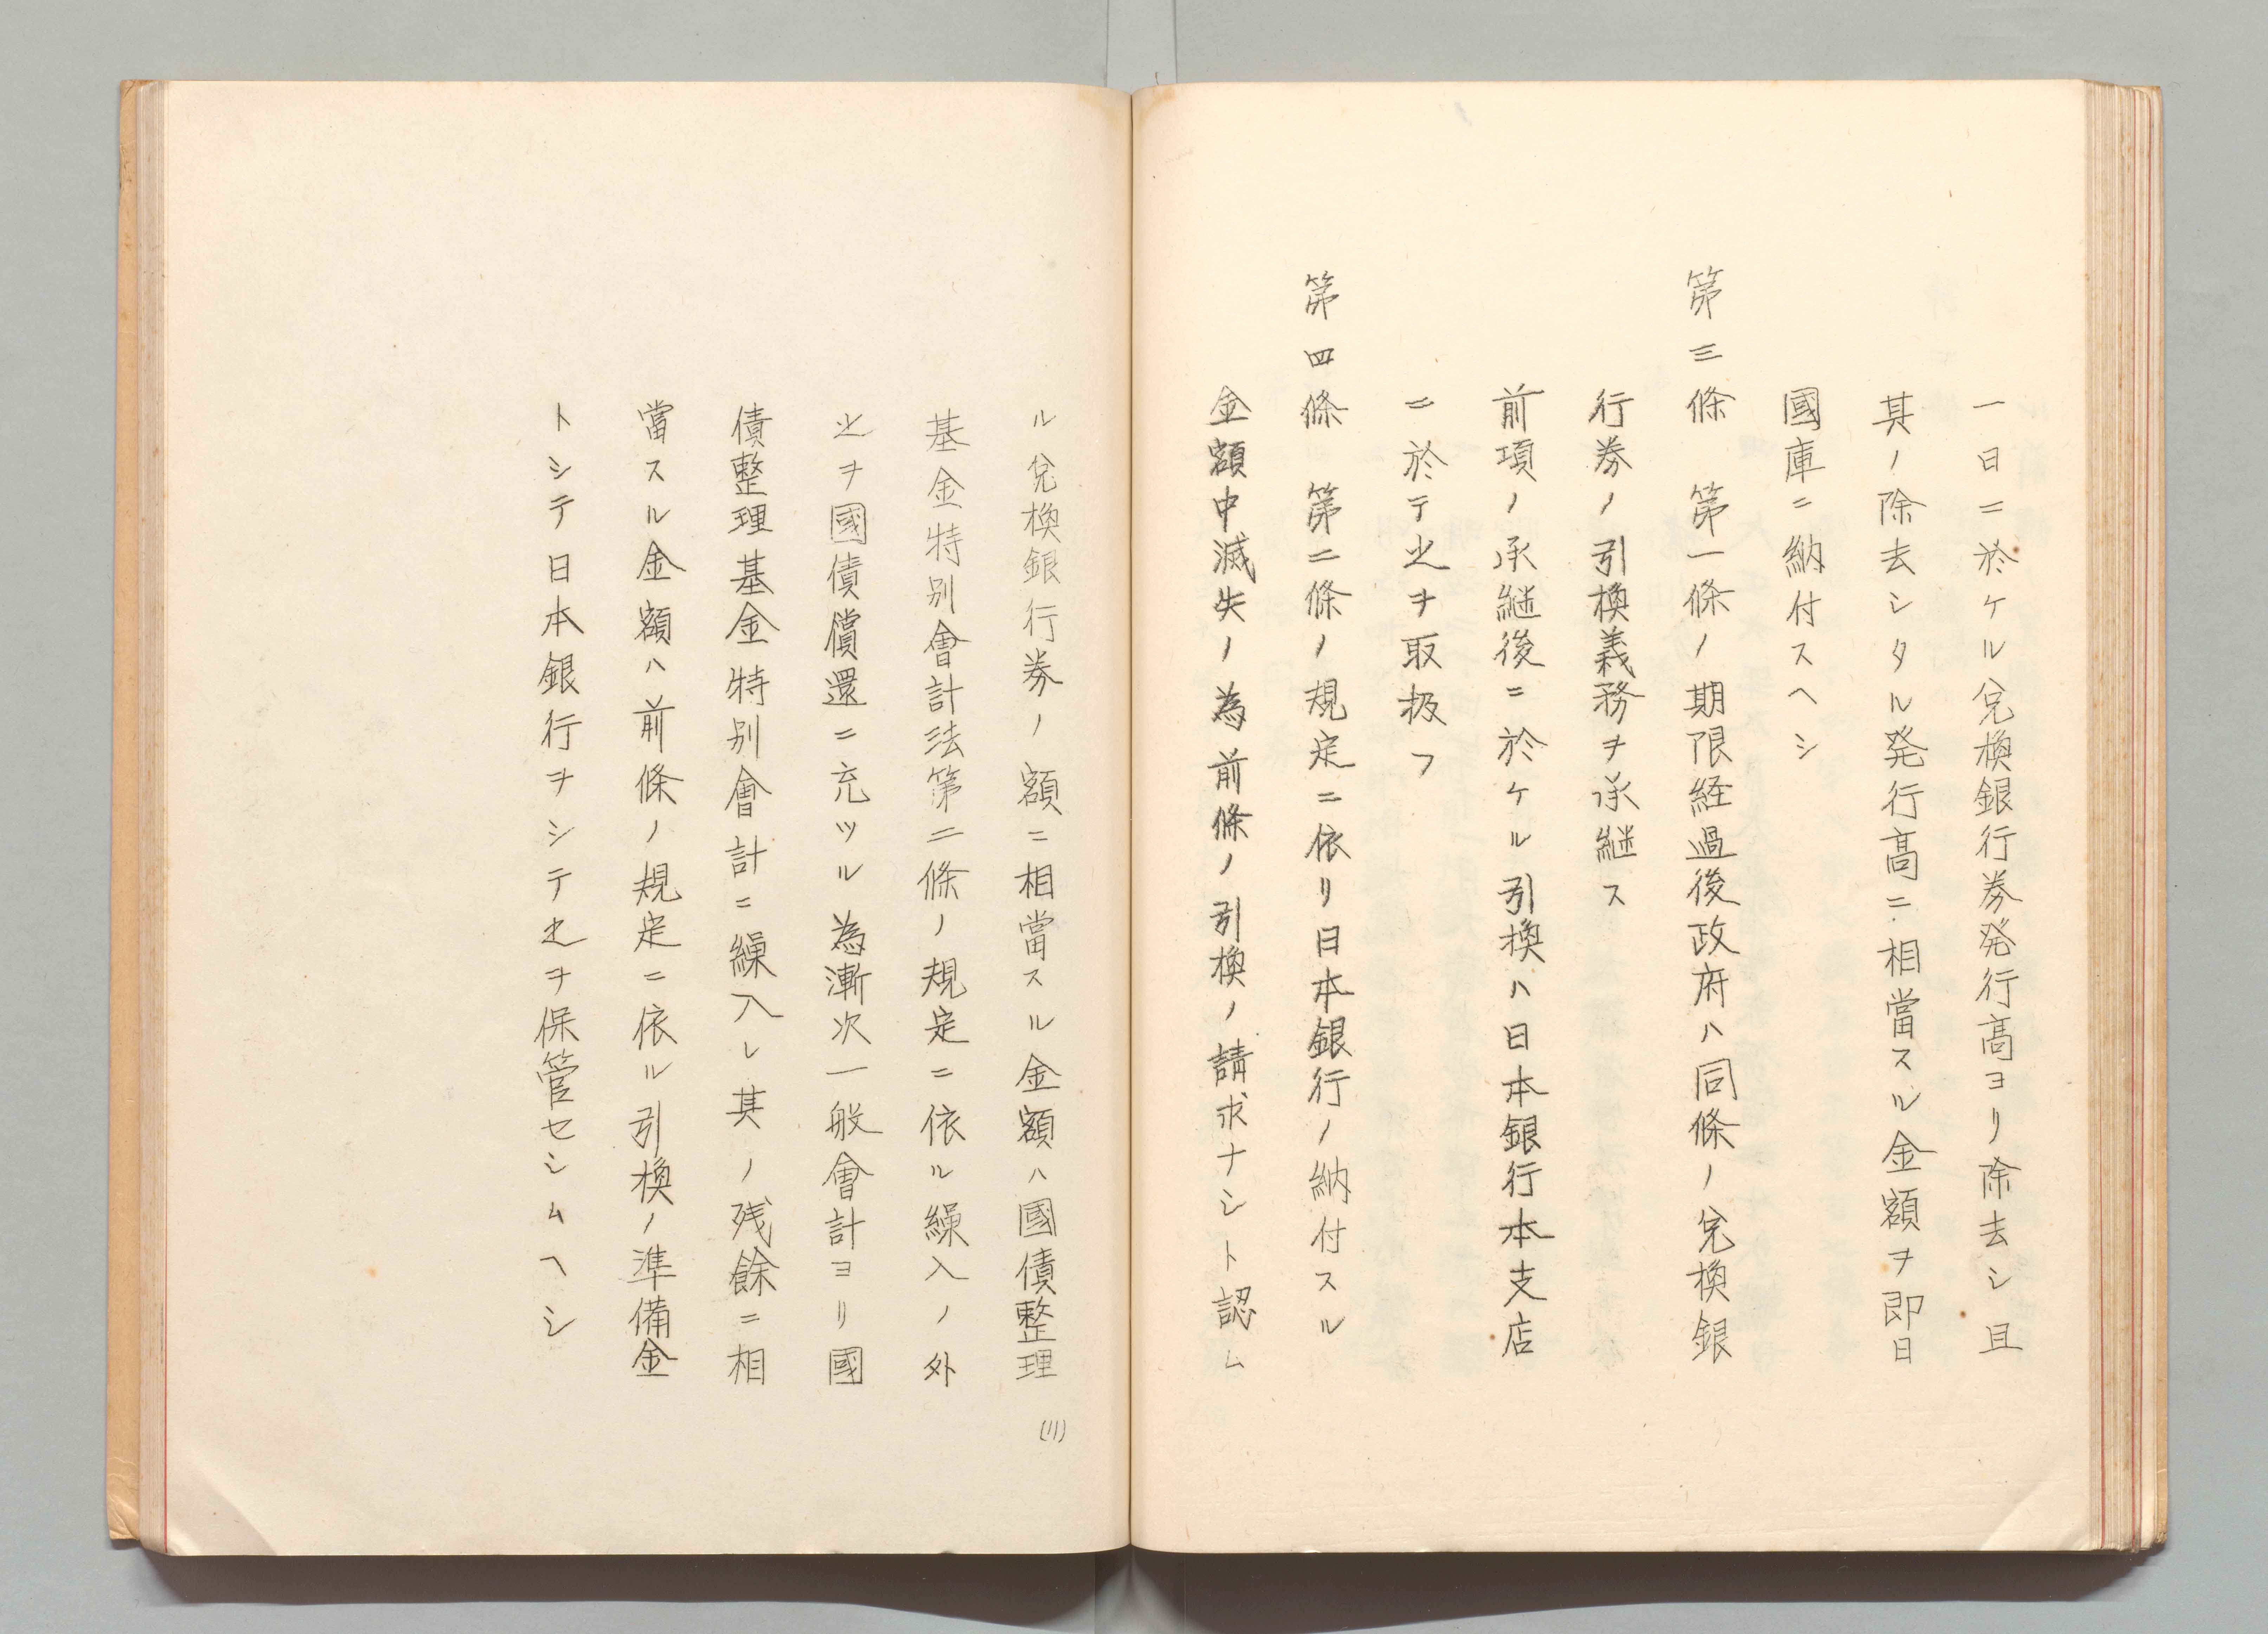 一日ニ於ケル兌換銀行券発行高ヨリ除去シ且
其ノ除去シタル発行高ニ相當スル金額ヲ即日
國庫ニ納付スヘシ
第三條　第一條ノ期限経過後政府ハ同條ノ兌換銀
行券ノ引換義務ヲ承継ス
前項ノ承継後ニ於ケル引換ハ日本銀行本支店
ニ於テ之ヲ取扱フ
第四條　第二條ノ規定ニ依リ日本銀行ノ納付スル
金額中滅失ノ為前條ノ引換ノ請求ナシト認ム
ル兌換銀行券ノ額ニ相當スル金額ハ國債整理
基金特別會計法第二條ノ規定ニ依ル繰入ノ外
之ヲ國債償還ニ充ツル為漸次一般會計ヨリ國
債整理基金特別會計ニ繰入レ其ノ残餘ニ相
當スル金額ハ前條ノ規定ニ依ル引換ノ準備金
トシテ日本銀行ヲシテ之ヲ保管セシムヘシ
(11)